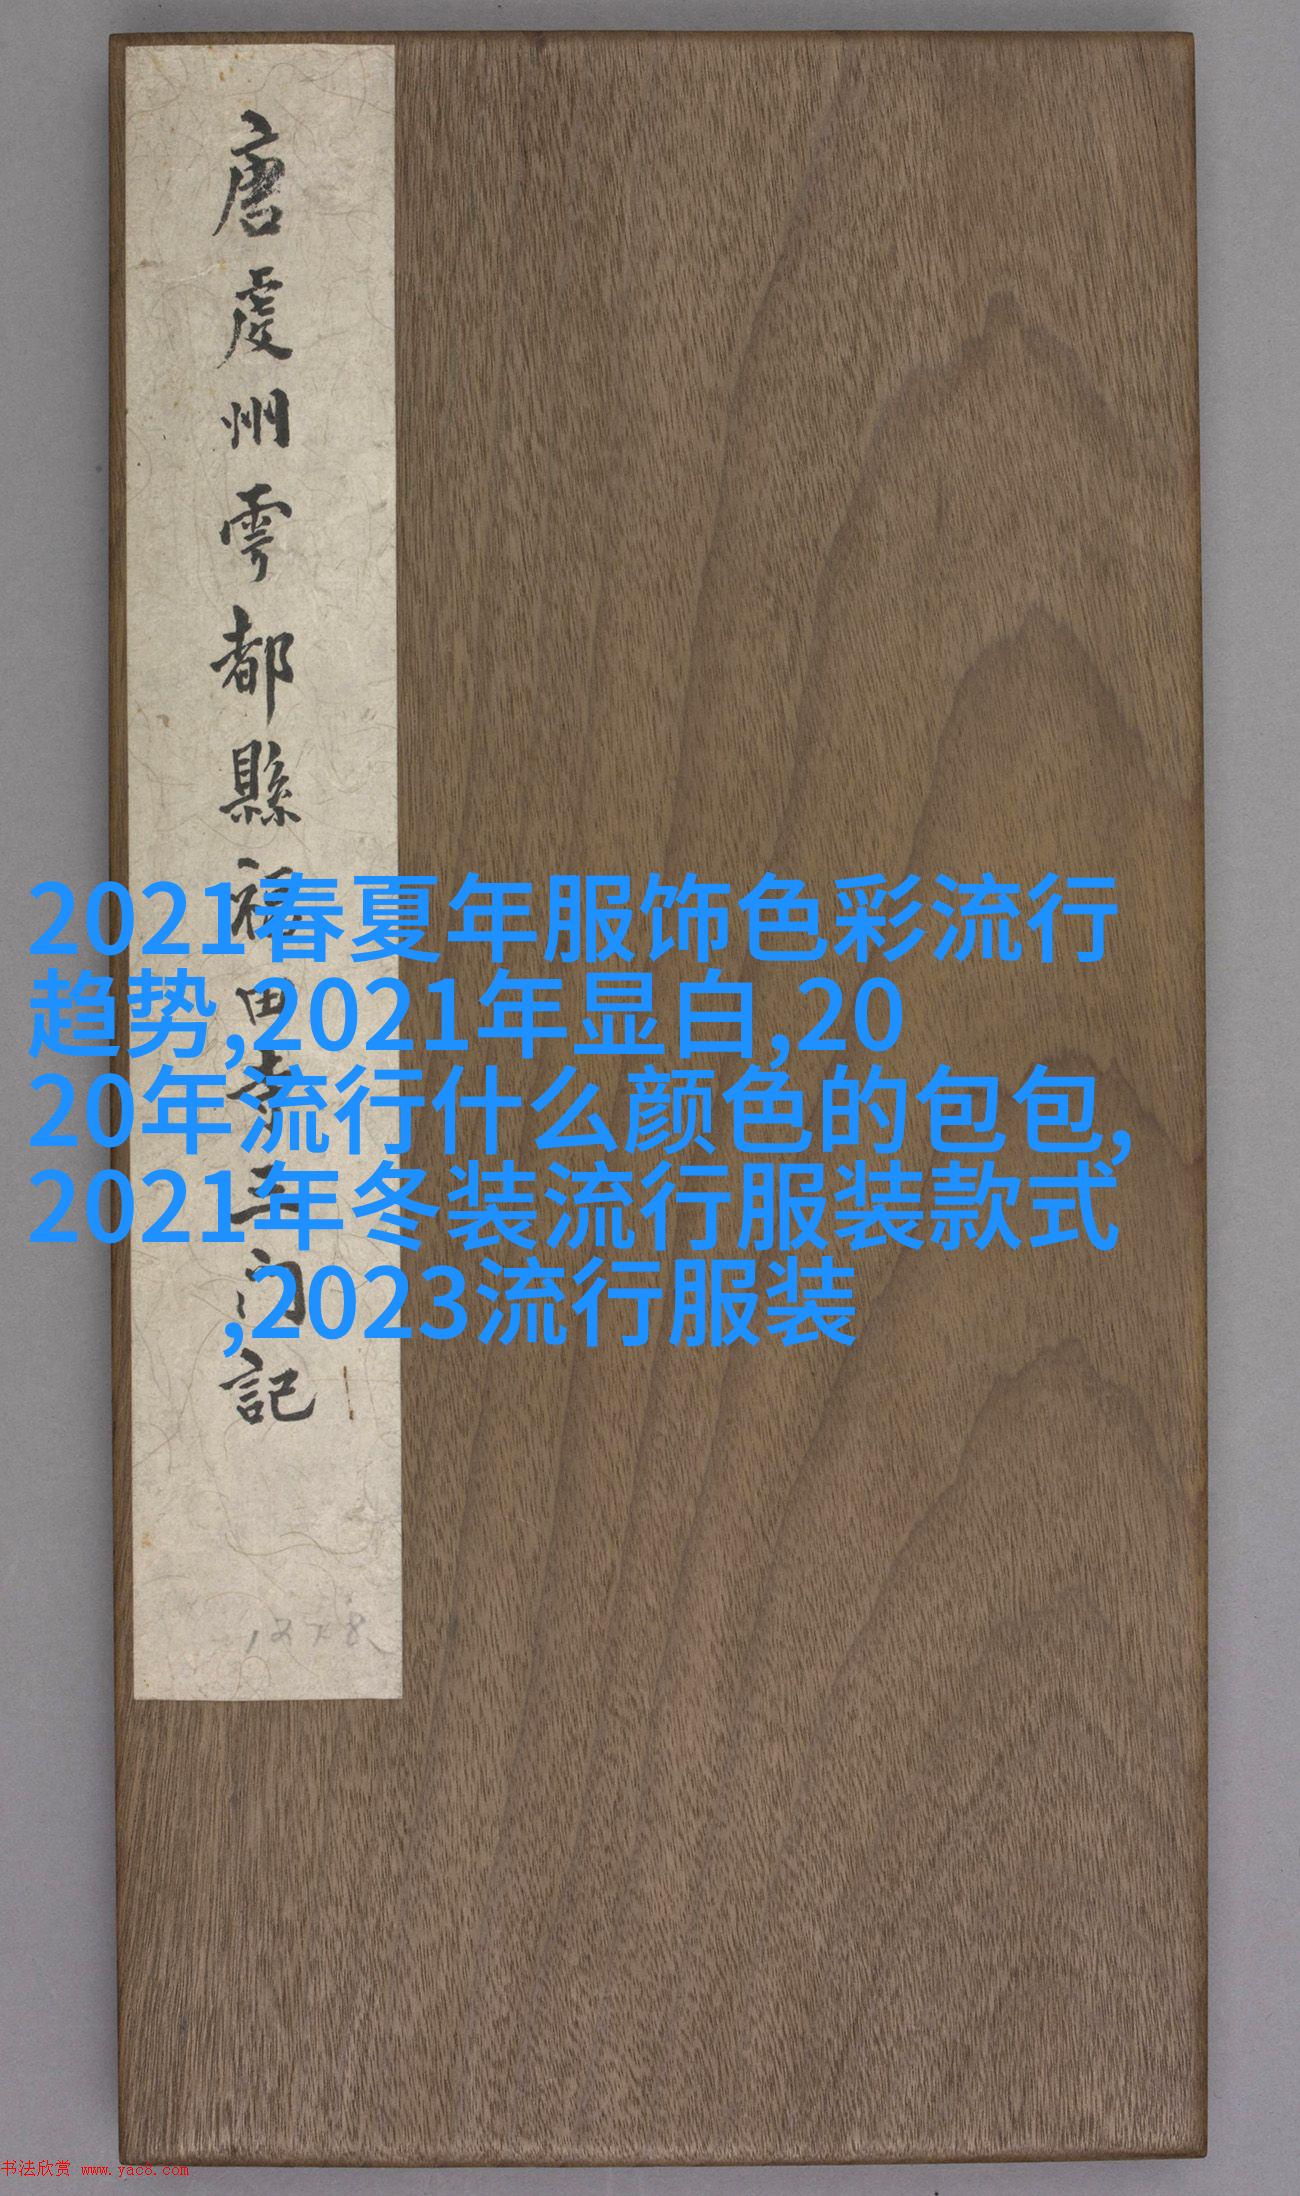 唐虔州雩都縣福田寺三門記
2021春夏年服饰色彩流行
趋势,2021年显白,20
20年流行什么颜色的包包,
2021年冬装流行服装款式
,2023流行服装
书法欣赏 www.yac8.com